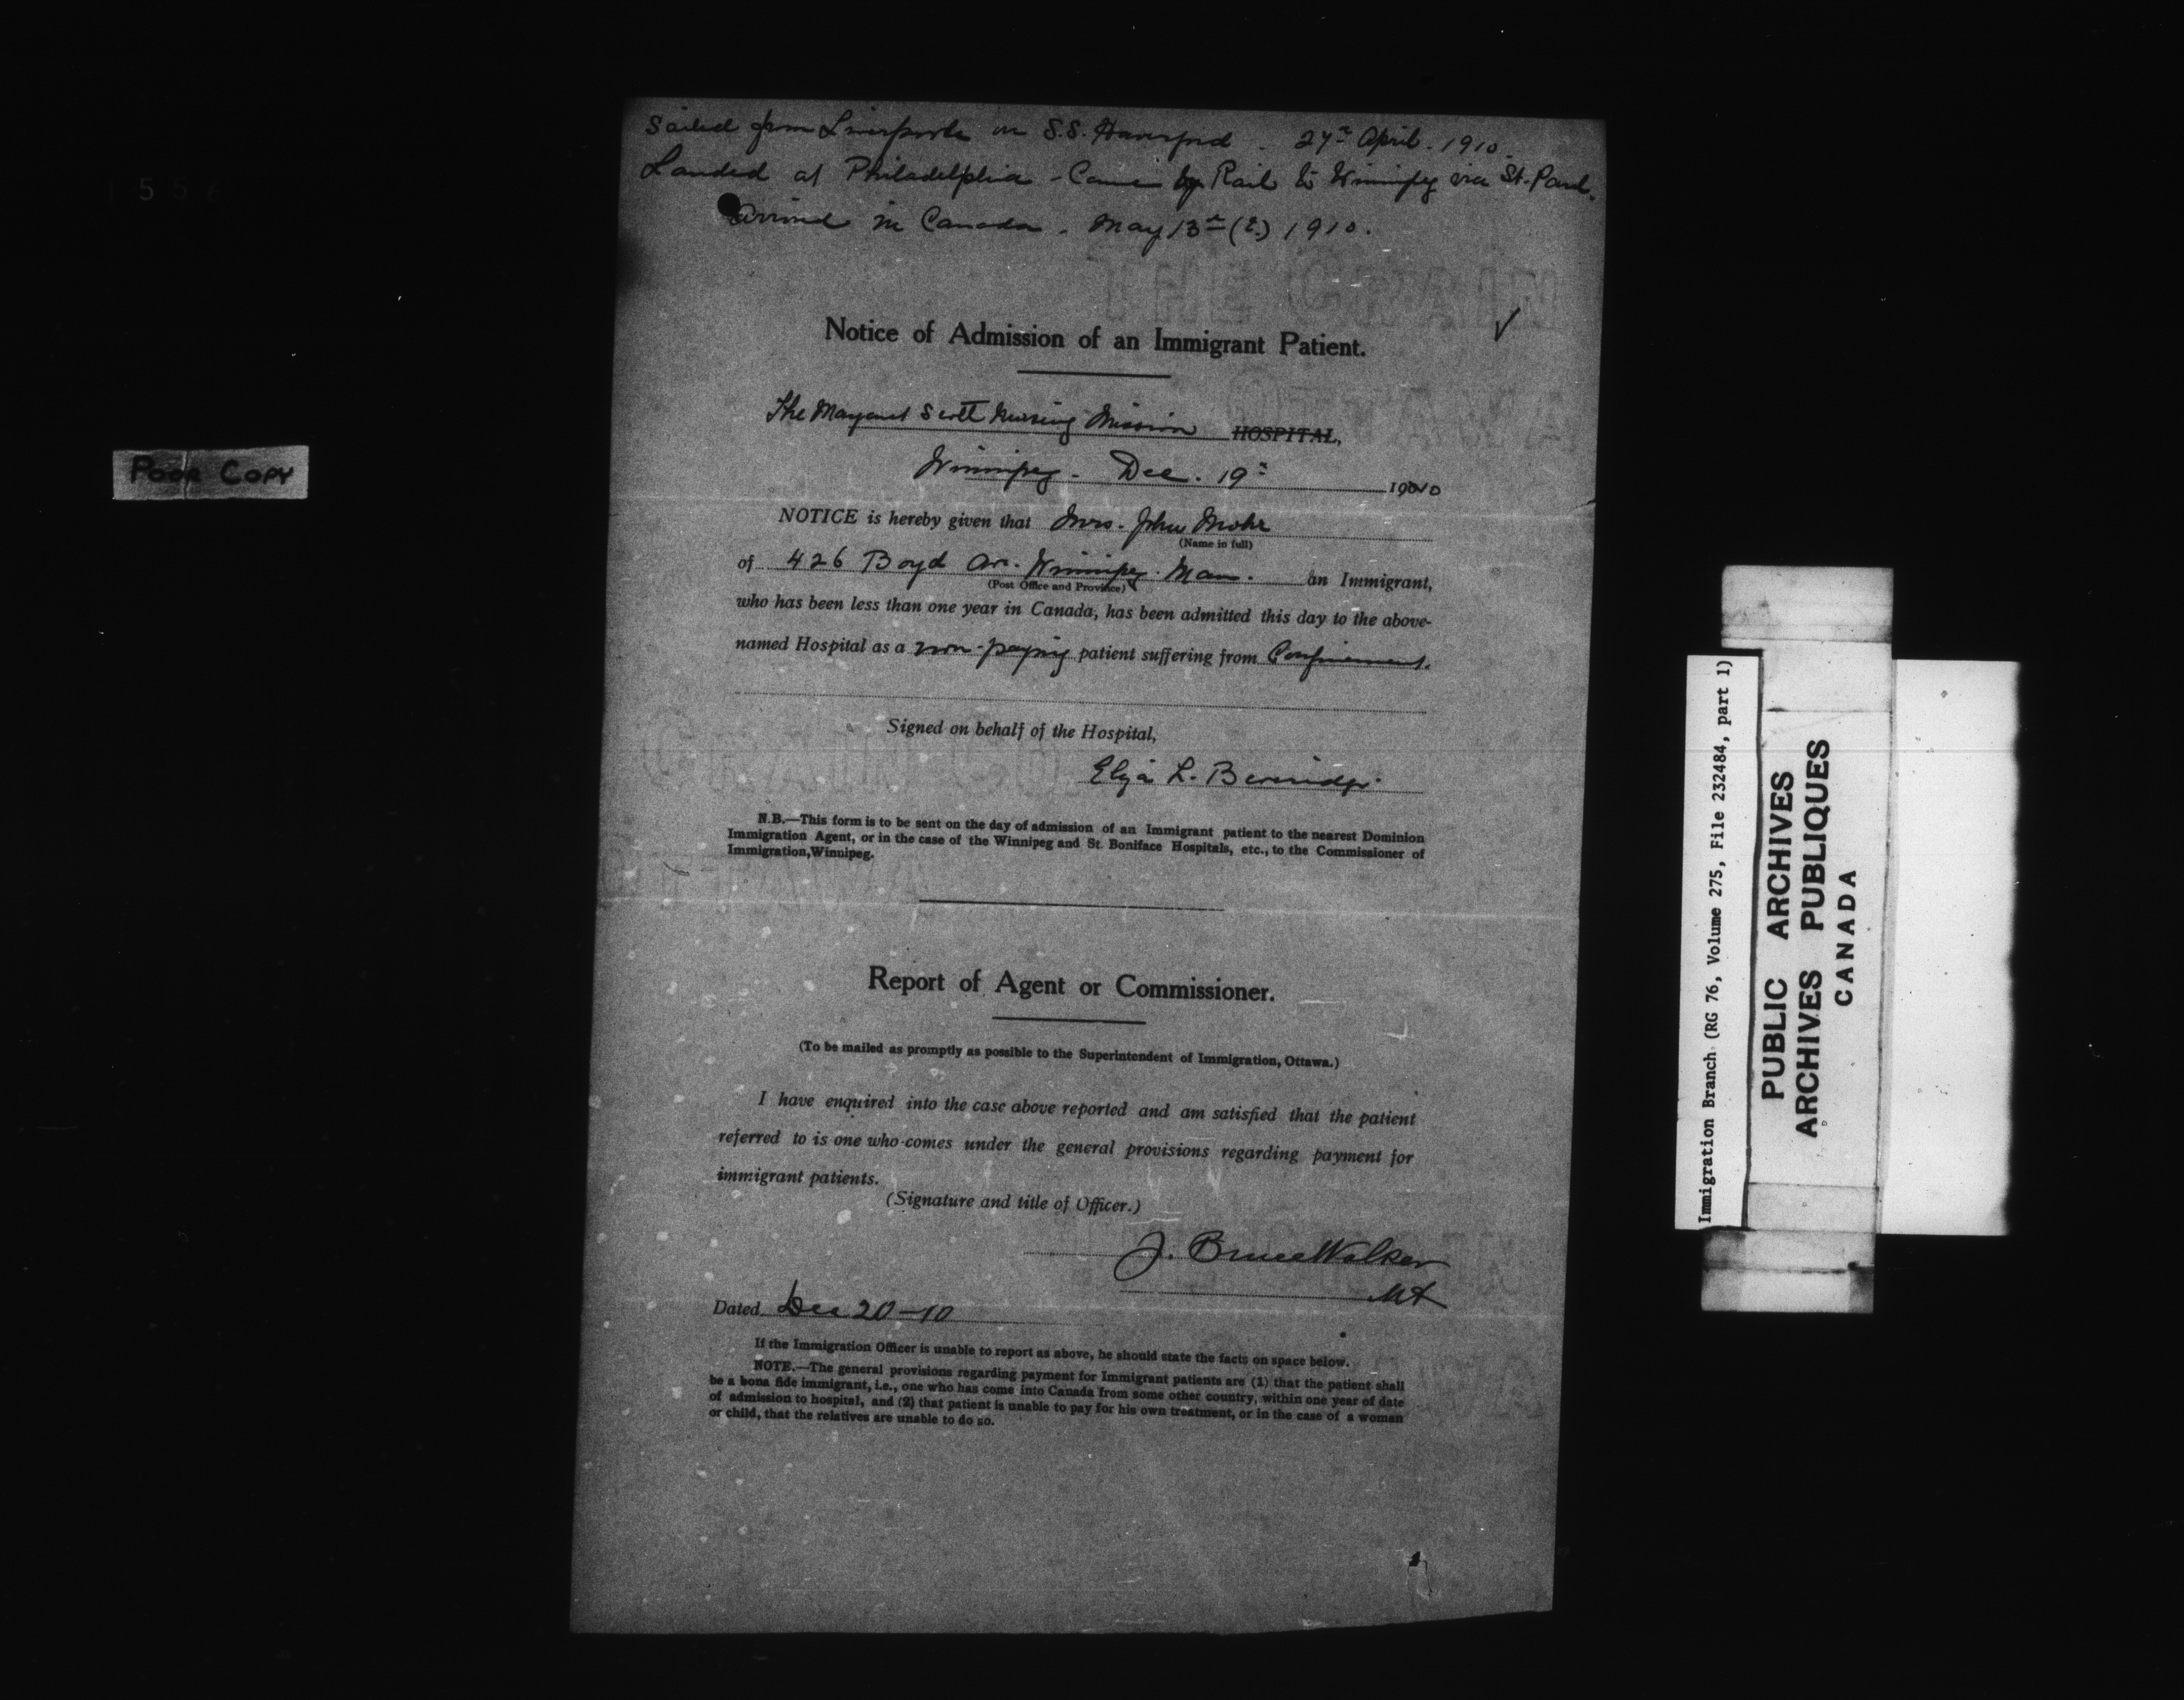 Sailed from Liverpool on S.S. Haverford. 27th April. 1910.
Landed at Philadelphia - Came by Rail to Winnipeg via St. Paul.
Arrived in Canada. May 13th (?) 1910.
Notice of Admission of an Immigrant Patient.
The Margaret Scott Nursing Mission HOSPITAL,
Winnipeg. Dec. 19th 1910
NOTICE is hereby given that Mrs. John Mohr
(Name in full)
of 426 Boyd Av. Winnipeg. Man. an Immigrant,
(Post Office and Province)
who has been less than one year in Canada, has been admitted this day to the above-
named Hospital as a non-paying patient suffering from Confinement.
Signed on behalf of the Hospital,
Eliza L. Beveridge.
N.B.—This form is to be sent on the day of admission of an Immigrant patient to the nearest Dominion
Immigration Agent, or in the case of the Winnipeg and St. Boniface Hospitals, etc., to the Commissioner of
Immigration, Winnipeg.
Report of Agent or Commissioner.
(To be mailed as promptly as possible to the Superintendent of Immigration, Ottawa.)
I have enquired into the case above reported and am satisfied that the patient
referred to is one who comes under the general provisions regarding payment for
immigrant patients.
(Signature and title of Officer.)
J. Bruce Walker
Dated Dec 20-10
If the Immigration Officer is unable to report as above, he should state the facts on space below.
NOTE.—The general provisions regarding payment for Immigrant patients are (1) that the patient shall
be a bona fide immigrant, i.e., one who has come into Canada from some other country, within one year of date
of admission to hospital, and (2) that patient is unable to pay for his own treatment, or in the case of a woman
or child, that the relatives are unable to do so.
POOR COPY
Immigration Branch (RG 76, Volume 275, File 232484, part 1)
PUBLIC ARCHIVES
ARCHIVES PUBLIQUES
CANADA